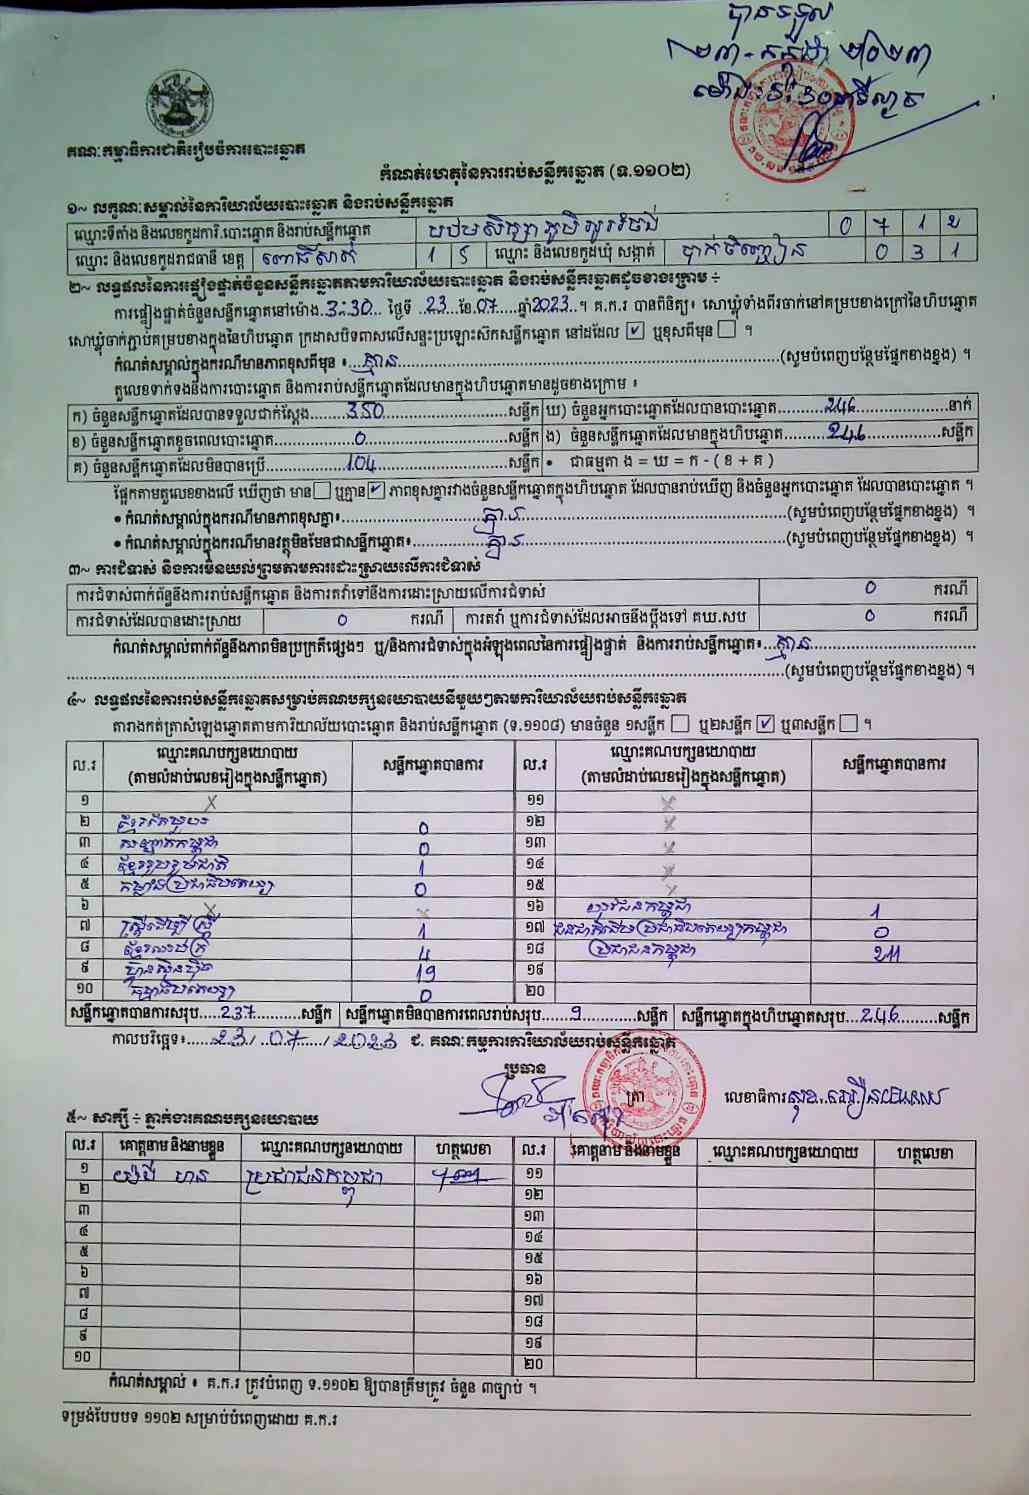 បានទទួល
២៣-កក្កដា ២០២៣
គណៈកម្មាធិការជាតិរៀបចំការបោះឆ្នោត
កំណត់ហេតុនៃការរាប់សន្លឹកឆ្នោត (ទ.១១០២)
១~ លក្ខណៈសម្គាល់នៃការិយាល័យបោះឆ្នោត និងរាប់សន្លឹកឆ្នោត
ឈ្មោះទីតាំង និងលេខកូដការិ.បោះឆ្នោត និងរាប់សន្លឹកឆ្នោត បឋមសិក្សា ភូមិ 0 7 1 2
ឈ្មោះ និងលេខកូដរាជធានី ខេត្ត ពោធិ៍សាត់ 1 5 ឈ្មោះ និងលេខកូដឃុំ សង្កាត់ បាក់ចិញ្ចៀន 0 3 1
២~ លទ្ធផលនៃការផ្ទៀងផ្ទាត់ចំនួនសន្លឹកឆ្នោតតាមការិយាល័យបោះឆ្នោត និងរាប់សន្លឹកឆ្នោតដូចខាងក្រោម ÷
ការផ្ទៀងផ្ទាត់ចំនួនសន្លឹកឆ្នោតនៅម៉ោង 3:30 ថ្ងៃទី 23 ខែ 07 ឆ្នាំ 2023 ។ គ.ក.រ បានពិនិត្យ៖ សោឃ្លុំទាំងពីរចាក់នៅគម្របខាងក្រៅនៃហិបឆ្នោត
សោឃ្លុំចាក់ភ្ជាប់គម្របខាងក្នុងនៃហិបឆ្នោត ក្រដាសបិទពាសលើសន្ទះប្រឡោះស៊កសន្លឹកឆ្នោត នៅដដែល ☑ ឬខុសពីមុន ☐ ។
កំណត់សម្គាល់ក្នុងករណីមានភាពខុសពីមុន ៖ គ្មាន (សូមបំពេញបន្ថែមផ្នែកខាងខ្នង) ។
តួលេខទាក់ទងនឹងការបោះឆ្នោត និងការរាប់សន្លឹកឆ្នោតដែលមានក្នុងហិបឆ្នោតមានដូចខាងក្រោម ៖
ក) ចំនួនសន្លឹកឆ្នោតដែលបានទទួលជាក់ស្តែង 350 សន្លឹក ឃ) ចំនួនអ្នកបោះឆ្នោតដែលបានបោះឆ្នោត 246 នាក់
ខ) ចំនួនសន្លឹកឆ្នោតខូចពេលបោះឆ្នោត 0 សន្លឹក ង) ចំនួនសន្លឹកឆ្នោតដែលមានក្នុងហិបឆ្នោត 246 សន្លឹក
គ) ចំនួនសន្លឹកឆ្នោតដែលមិនបានប្រើ 104 សន្លឹក • ជាធម្មតា ង = ឃ = ក - ( ខ + គ )
ផ្អែកតាមតួលេខខាងលើ ឃើញថា មាន ☐ ឬគ្មាន ☑ ភាពខុសគ្នារវាងចំនួនសន្លឹកឆ្នោតក្នុងហិបឆ្នោត ដែលបានរាប់ឃើញ និងចំនួនអ្នកបោះឆ្នោត ដែលបានបោះឆ្នោត ។
• កំណត់សម្គាល់ក្នុងករណីមានភាពខុសគ្នា៖ គ្មាន (សូមបំពេញបន្ថែមផ្នែកខាងខ្នង) ។
• កំណត់សម្គាល់ក្នុងករណីមានវត្ថុមិនមែនជាសន្លឹកឆ្នោត៖ គ្មាន (សូមបំពេញបន្ថែមផ្នែកខាងខ្នង) ។
៣~ ការជំទាស់ និងការមិនយល់ព្រមតាមការដោះស្រាយលើការជំទាស់
ការជំទាស់ពាក់ព័ន្ធនឹងការរាប់សន្លឹកឆ្នោត និងការតវ៉ាទៅនឹងការដោះស្រាយលើការជំទាស់ 0 ករណី
ការជំទាស់ដែលបានដោះស្រាយ 0 ករណី ការតវ៉ា ឬការជំទាស់ដែលអាចនឹងប្តឹងទៅ គឃ.សប 0 ករណី
កំណត់សម្គាល់ពាក់ព័ន្ធនឹងភាពមិនប្រក្រតីផ្សេងៗ ឬ/និងការជំទាស់ក្នុងអំឡុងពេលនៃការផ្ទៀងផ្ទាត់ និងការរាប់សន្លឹកឆ្នោត៖ គ្មាន
(សូមបំពេញបន្ថែមផ្នែកខាងខ្នង) ។
៤~ លទ្ធផលនៃការរាប់សន្លឹកឆ្នោតសម្រាប់គណបក្សនយោបាយនីមួយៗតាមការិយាល័យរាប់សន្លឹកឆ្នោត
តារាងកត់ត្រាសំឡេងឆ្នោតតាមការិយាល័យបោះឆ្នោត និងរាប់សន្លឹកឆ្នោត (ទ.១១០៨) មានចំនួន ១សន្លឹក ☐ ឬ២សន្លឹក ☑ ឬ៣សន្លឹក ☐ ។
ល.រ ឈ្មោះគណបក្សនយោបាយ (តាមលំដាប់លេខរៀងក្នុងសន្លឹកឆ្នោត) សន្លឹកឆ្នោតបានការ ល.រ ឈ្មោះគណបក្សនយោបាយ (តាមលំដាប់លេខរៀងក្នុងសន្លឹកឆ្នោត) សន្លឹកឆ្នោតបានការ
១ X ១១ X
២ 0 ១២ X
៣ 0 ១៣ X
៤ ខ្មែររួបរួមជាតិ 1 ១៤ X
៥ កម្លាំងប្រជាធិបតេយ្យ 0 ១៥ X
៦ X X ១៦ យុវជនកម្ពុជា 1
៧ ស្ត្រីដើម្បីស្ត្រី 1 ១៧ ជនជាតិដើមប្រជាធិបតេយ្យកម្ពុជា 0
៨ 4 ១៨ ប្រជាជនកម្ពុជា 211
៩ ហ៊្វុនស៊ិនប៉ិច 19 ១៩
១០ ធម្មាធិបតេយ្យ 0 ២០
សន្លឹកឆ្នោតបានការសរុប 237 សន្លឹក សន្លឹកឆ្នោតមិនបានការពេលរាប់សរុប 9 សន្លឹក សន្លឹកឆ្នោតក្នុងហិបឆ្នោតសរុប 246 សន្លឹក
កាលបរិច្ឆេទ៖ 23/ 07 / 2023 ជ. គណៈកម្មការការិយាល័យរាប់សន្លឹកឆ្នោត
ប្រធាន ត្រា លេខាធិការ
៥~ សាក្សី ÷ ភ្នាក់ងារគណបក្សនយោបាយ
ល.រ គោត្តនាម និងនាមខ្លួន ឈ្មោះគណបក្សនយោបាយ ហត្ថលេខា ល.រ គោត្តនាម និងនាមខ្លួន ឈ្មោះគណបក្សនយោបាយ ហត្ថលេខា
១ ប្រជាជនកម្ពុជា ១១
២ ១២
៣ ១៣
៤ ១៤
៥ ១៥
៦ ១៦
៧ ១៧
៨ ១៨
៩ ១៩
១០ ២០
កំណត់សម្គាល់ ៖ គ.ក.រ ត្រូវបំពេញ ទ.១១០២ ឱ្យបានត្រឹមត្រូវ ចំនួន ៣ច្បាប់ ។
ទម្រង់បែបបទ ១១០២ សម្រាប់បំពេញដោយ គ.ក.រ